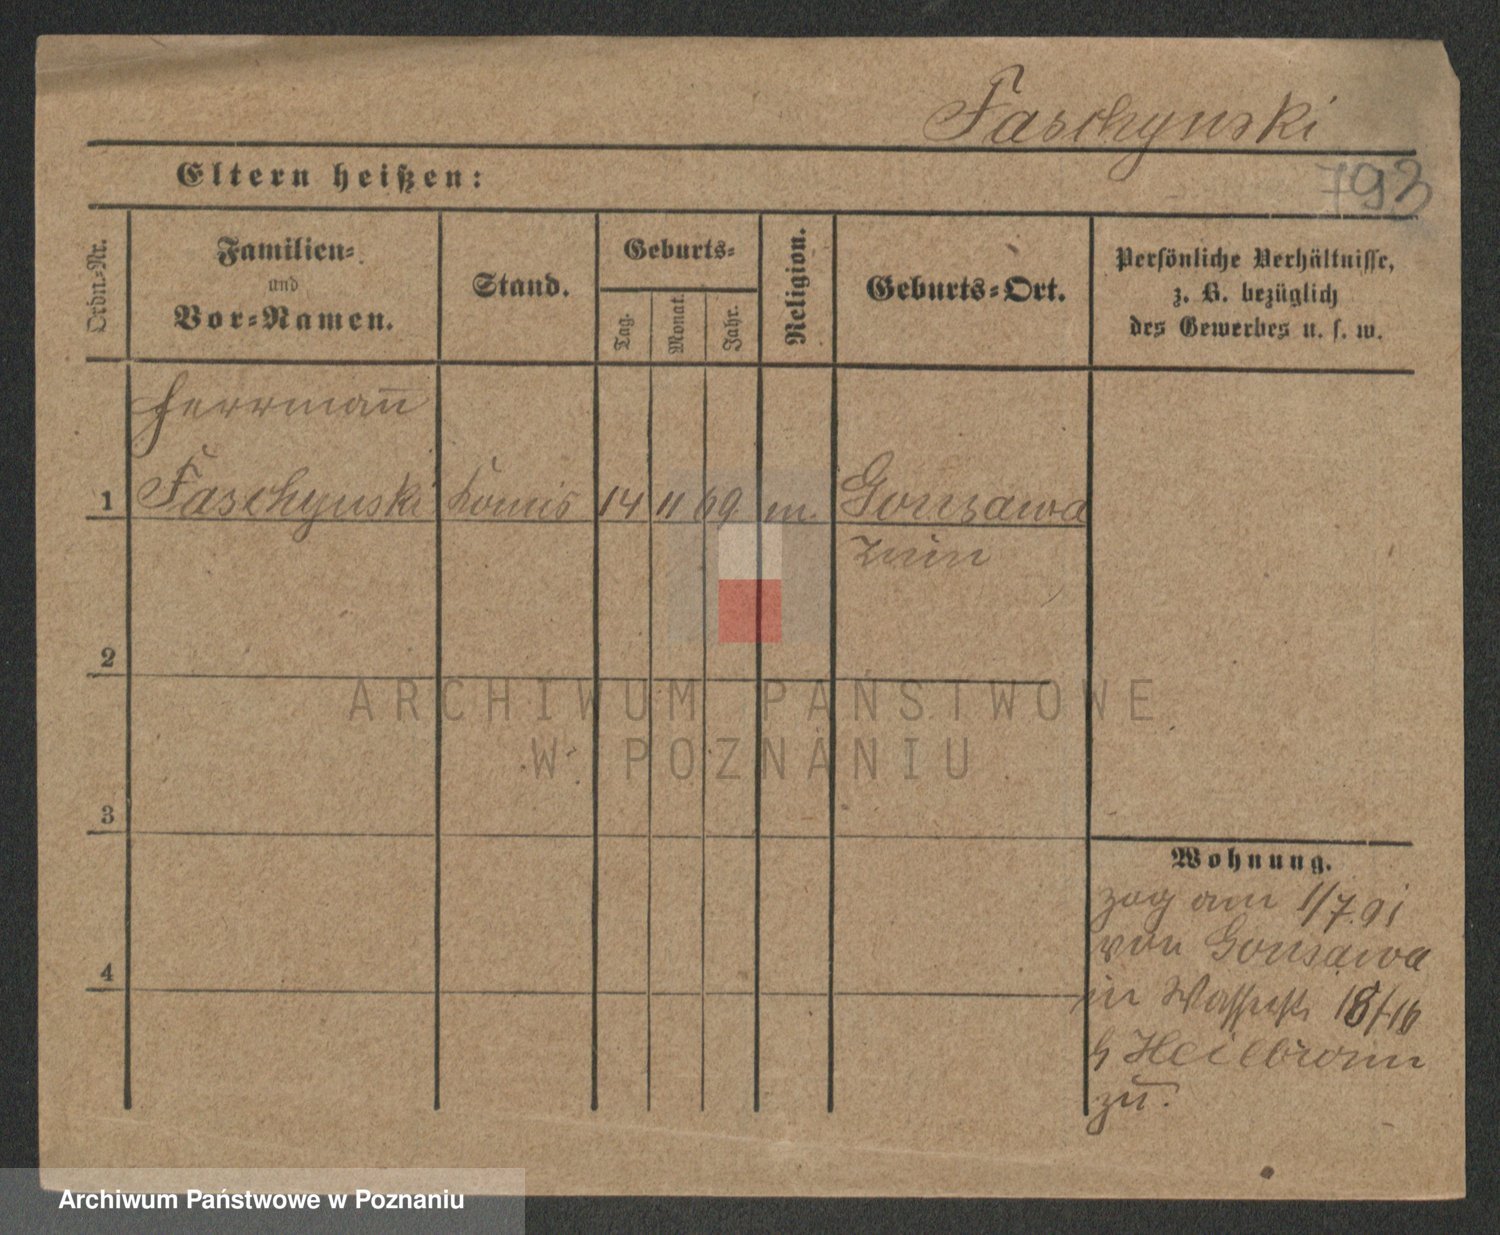 Faschynski
793
Eltern heißen:
Ordn.-Nr.
Familien-
und
Vor-Namen.
Stand.
Geburts-
Tag.
Monat.
Jahr.
Religion.
Geburts-Ort.
Persönliche Verhältnisse,
z. B. bezüglich
des Gewerbes u. s. w.
Herrmann̄
1 Faschynski Commis 14 11 69 m. Gonsawa
Znin
2
3
4
ARCHIWUM PAŃSTWOWE
W POZNANIU
Wohnung.
zog am 1/7.91
von Gonsawa
in Wasserstr. 18/16
b Heilbronn
zu.
Archiwum Państwowe w Poznaniu